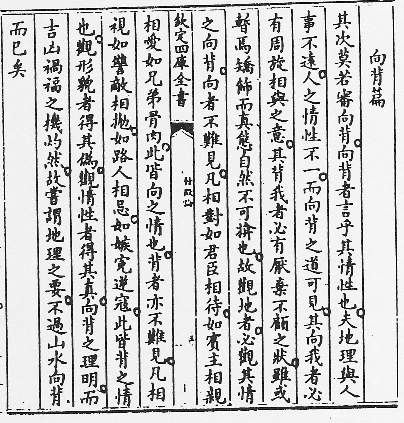 向背篇
其次莫若審向背向背者言乎其情性也夫地理與人
事不遠人之情性不一而向背之道可見其向我者必
有周旋相與之意其背我者必有厭棄不顧之狀雖或
暫焉矯飾而真態自然不可揜也故觀地者必觀其情
之向背向者不難見凡相對如君臣相待如賓主相親
欽定四庫全書
相愛如兄弟骨肉此皆向之情也背者亦不難見凡相
視如讐敵相拋如路人相忌如嫉寃逆寇此皆背之情
也觀形貌者得其偽觀情性者得其真向背之理明而
吉凶禍福之機灼然故嘗謂地理之要不過山水向背
而已矣